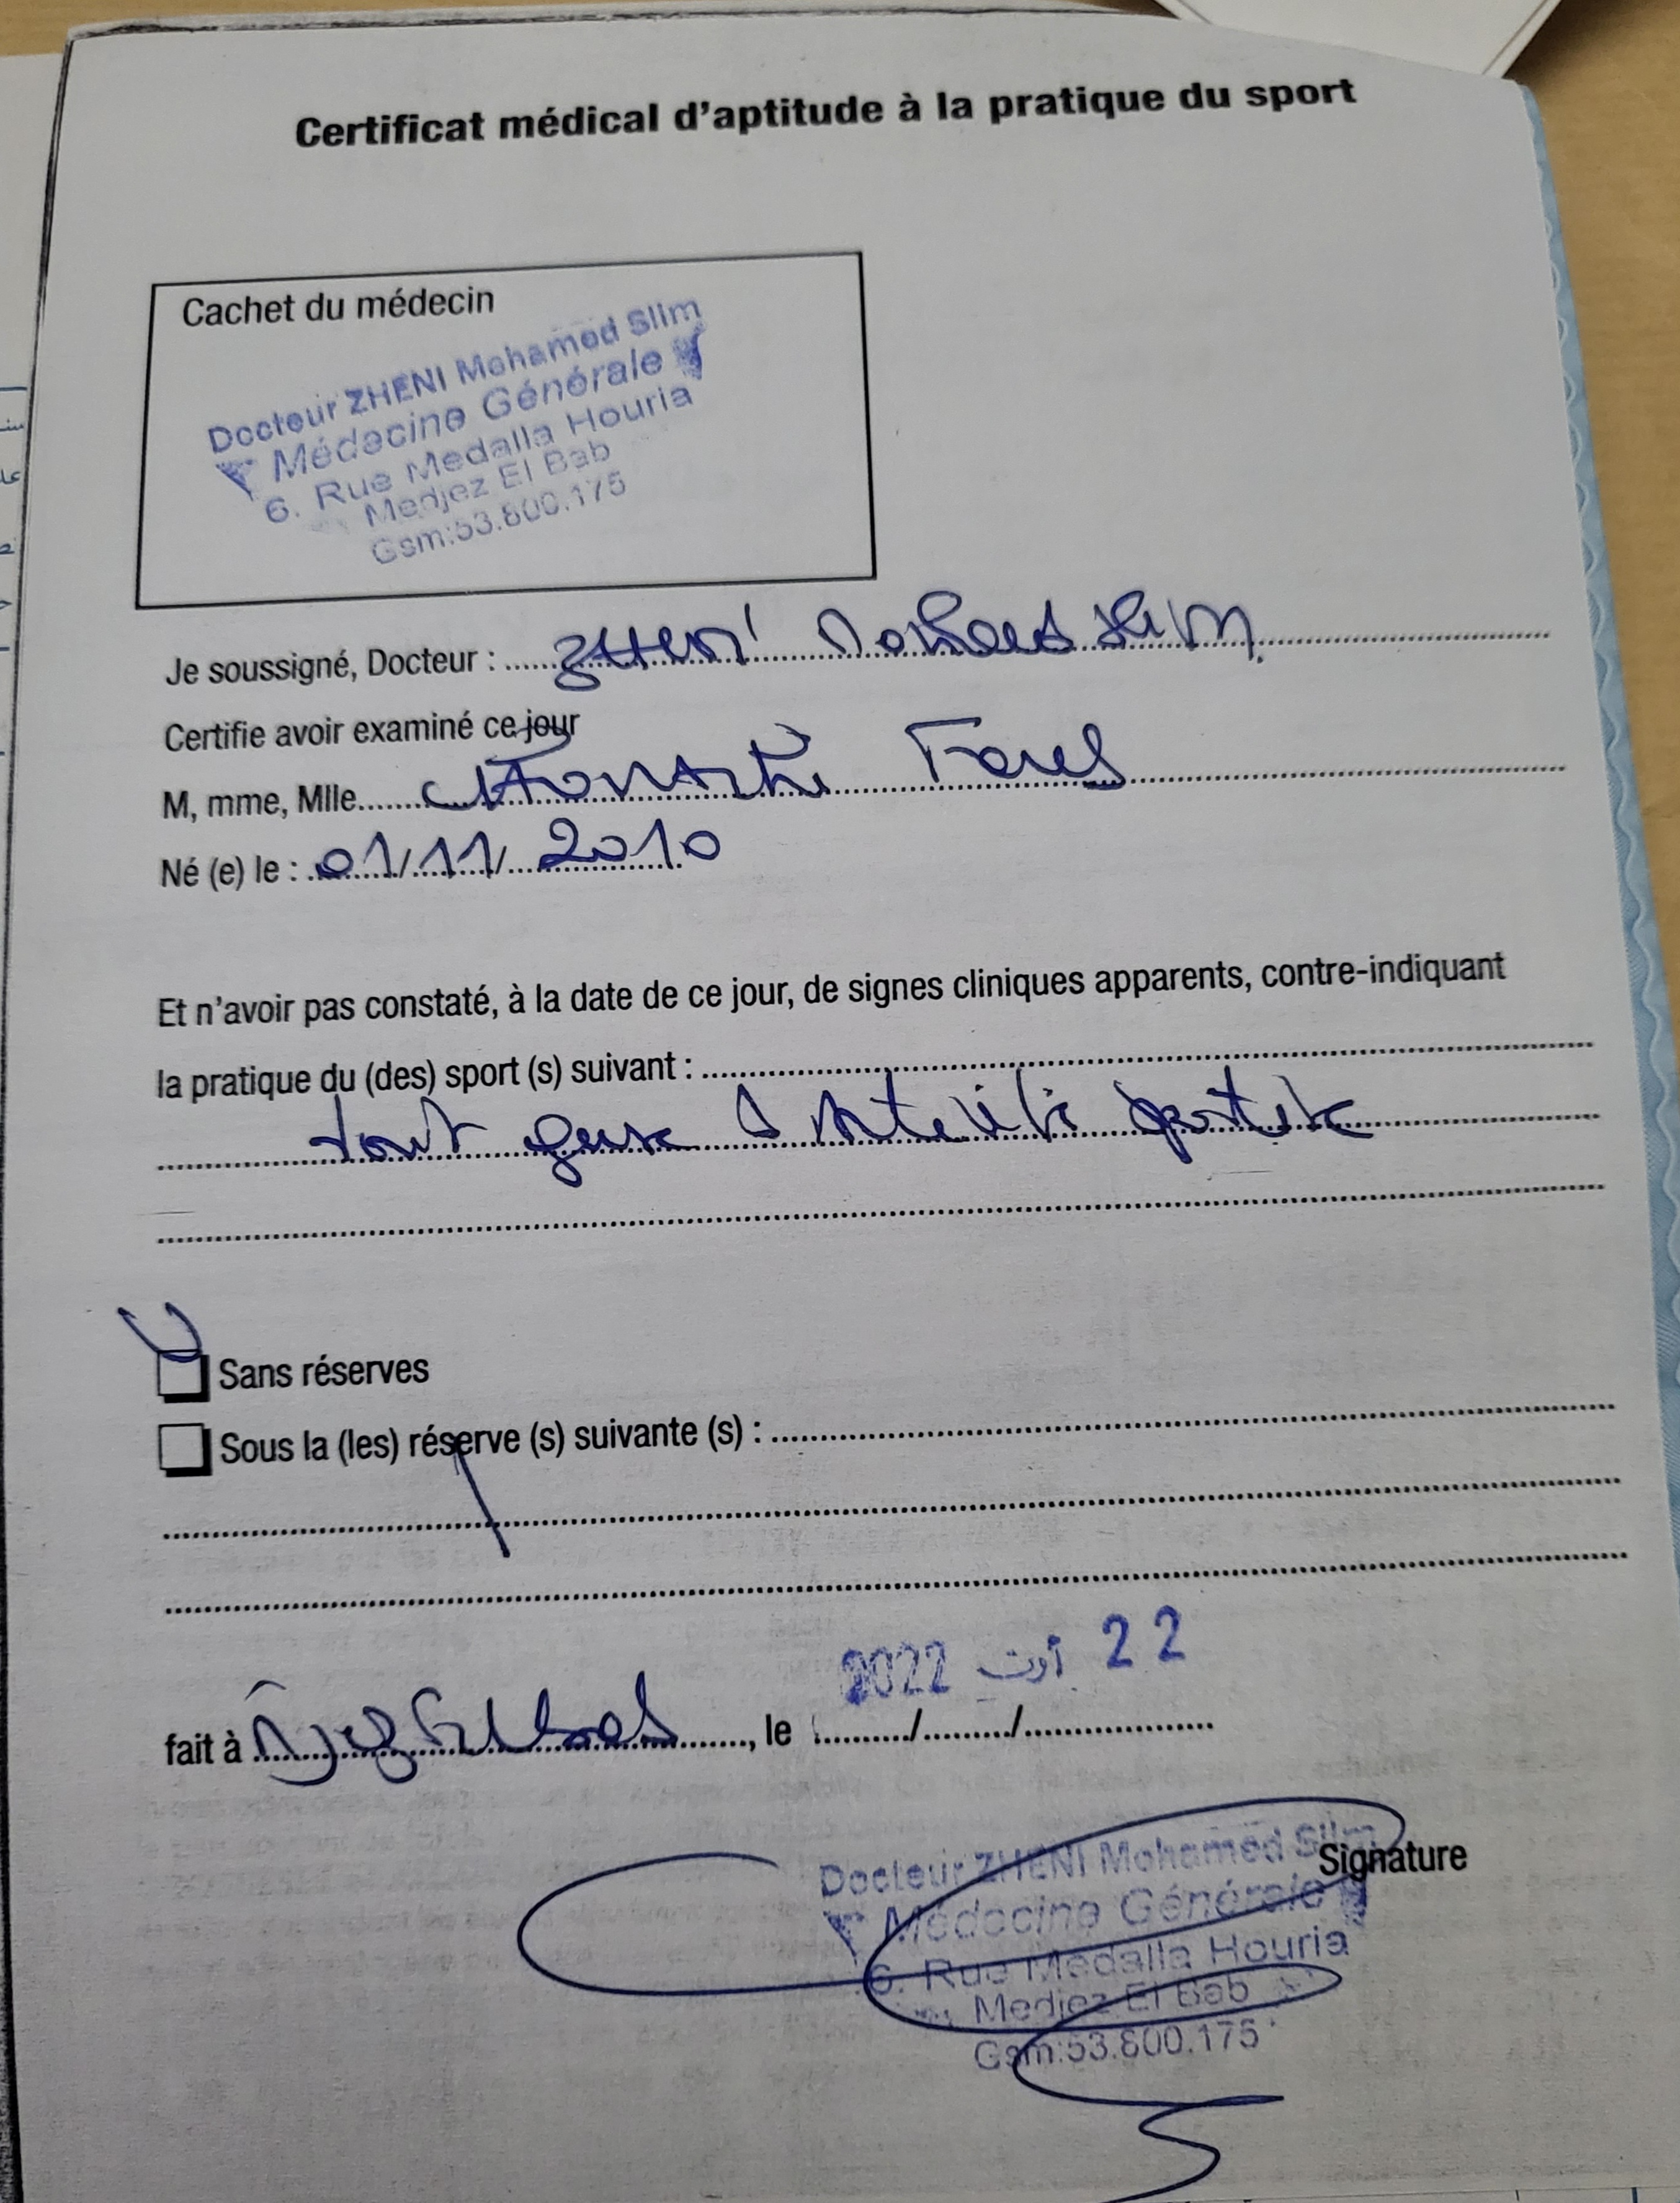 Certificat médical d'aptitude à la pratique du sport
Cachet du médecin
Docteur ZHENI Mohamed Slim
Médecine Générale
6. Rue Medalla Houria
Medjez El Bab
Gsm:53.800.175
Je soussigné, Docteur : ZHENI Mohamed Slim
Certifie avoir examiné ce jour
M, mme, Mlle Fares
Né (e) le : 01/11/2010
Et n'avoir pas constaté, à la date de ce jour, de signes cliniques apparents, contre-indiquant
la pratique du (des) sport (s) suivant :
tout genre
Sans réserves
Sous la (les) réserve (s) suivante (s) :
22 أوت 2022
fait à , le / /
Signature
Docteur ZHENI Mohamed Slim
Médecine Générale
6. Rue Medalla Houria
Medjez El Bab
Gsm:53.800.175